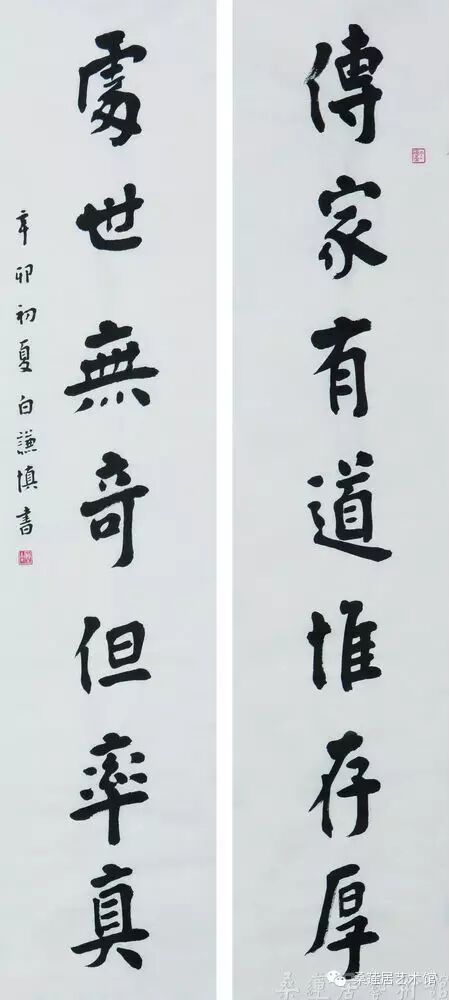 傳家有道惟存厚
處世無奇但率真
辛卯初夏白謙慎書
桑蓮居艺术馆